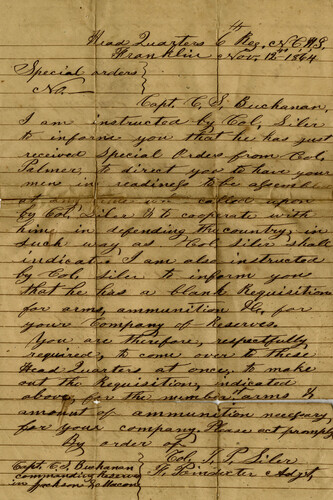 Head Quarters 6th Reg. N.C.H.G.
Franklin Nov. 12th 1864.
Special orders
No —
Capt. C. S. Buchanan,
I am instructed by Col. Siler
to inform you that he has just
received Special Orders from Col.
Palmer, to direct you to have your
men in readiness to be assembled
at any time when called upon
by Col. Siler & to cooperate with
him in defending the country, in
such way as Col. Siler shall
indicate. I am also instructed
by Col. Siler to inform you
that he has a blank Requisition
for arms, ammunition &c, for
your Company of Reserves.
You are therefore, respectfully
required, to come over to these
Head Quarters at once, to make
out the Requisition, indicated
above, for the number arms &
amount of ammunition necessary
for your company. Please act promptly
By order of
Col. Siler
Adjt.
Capt. C. S. Buchanan
commanding Reserves
in Jackson & Macon